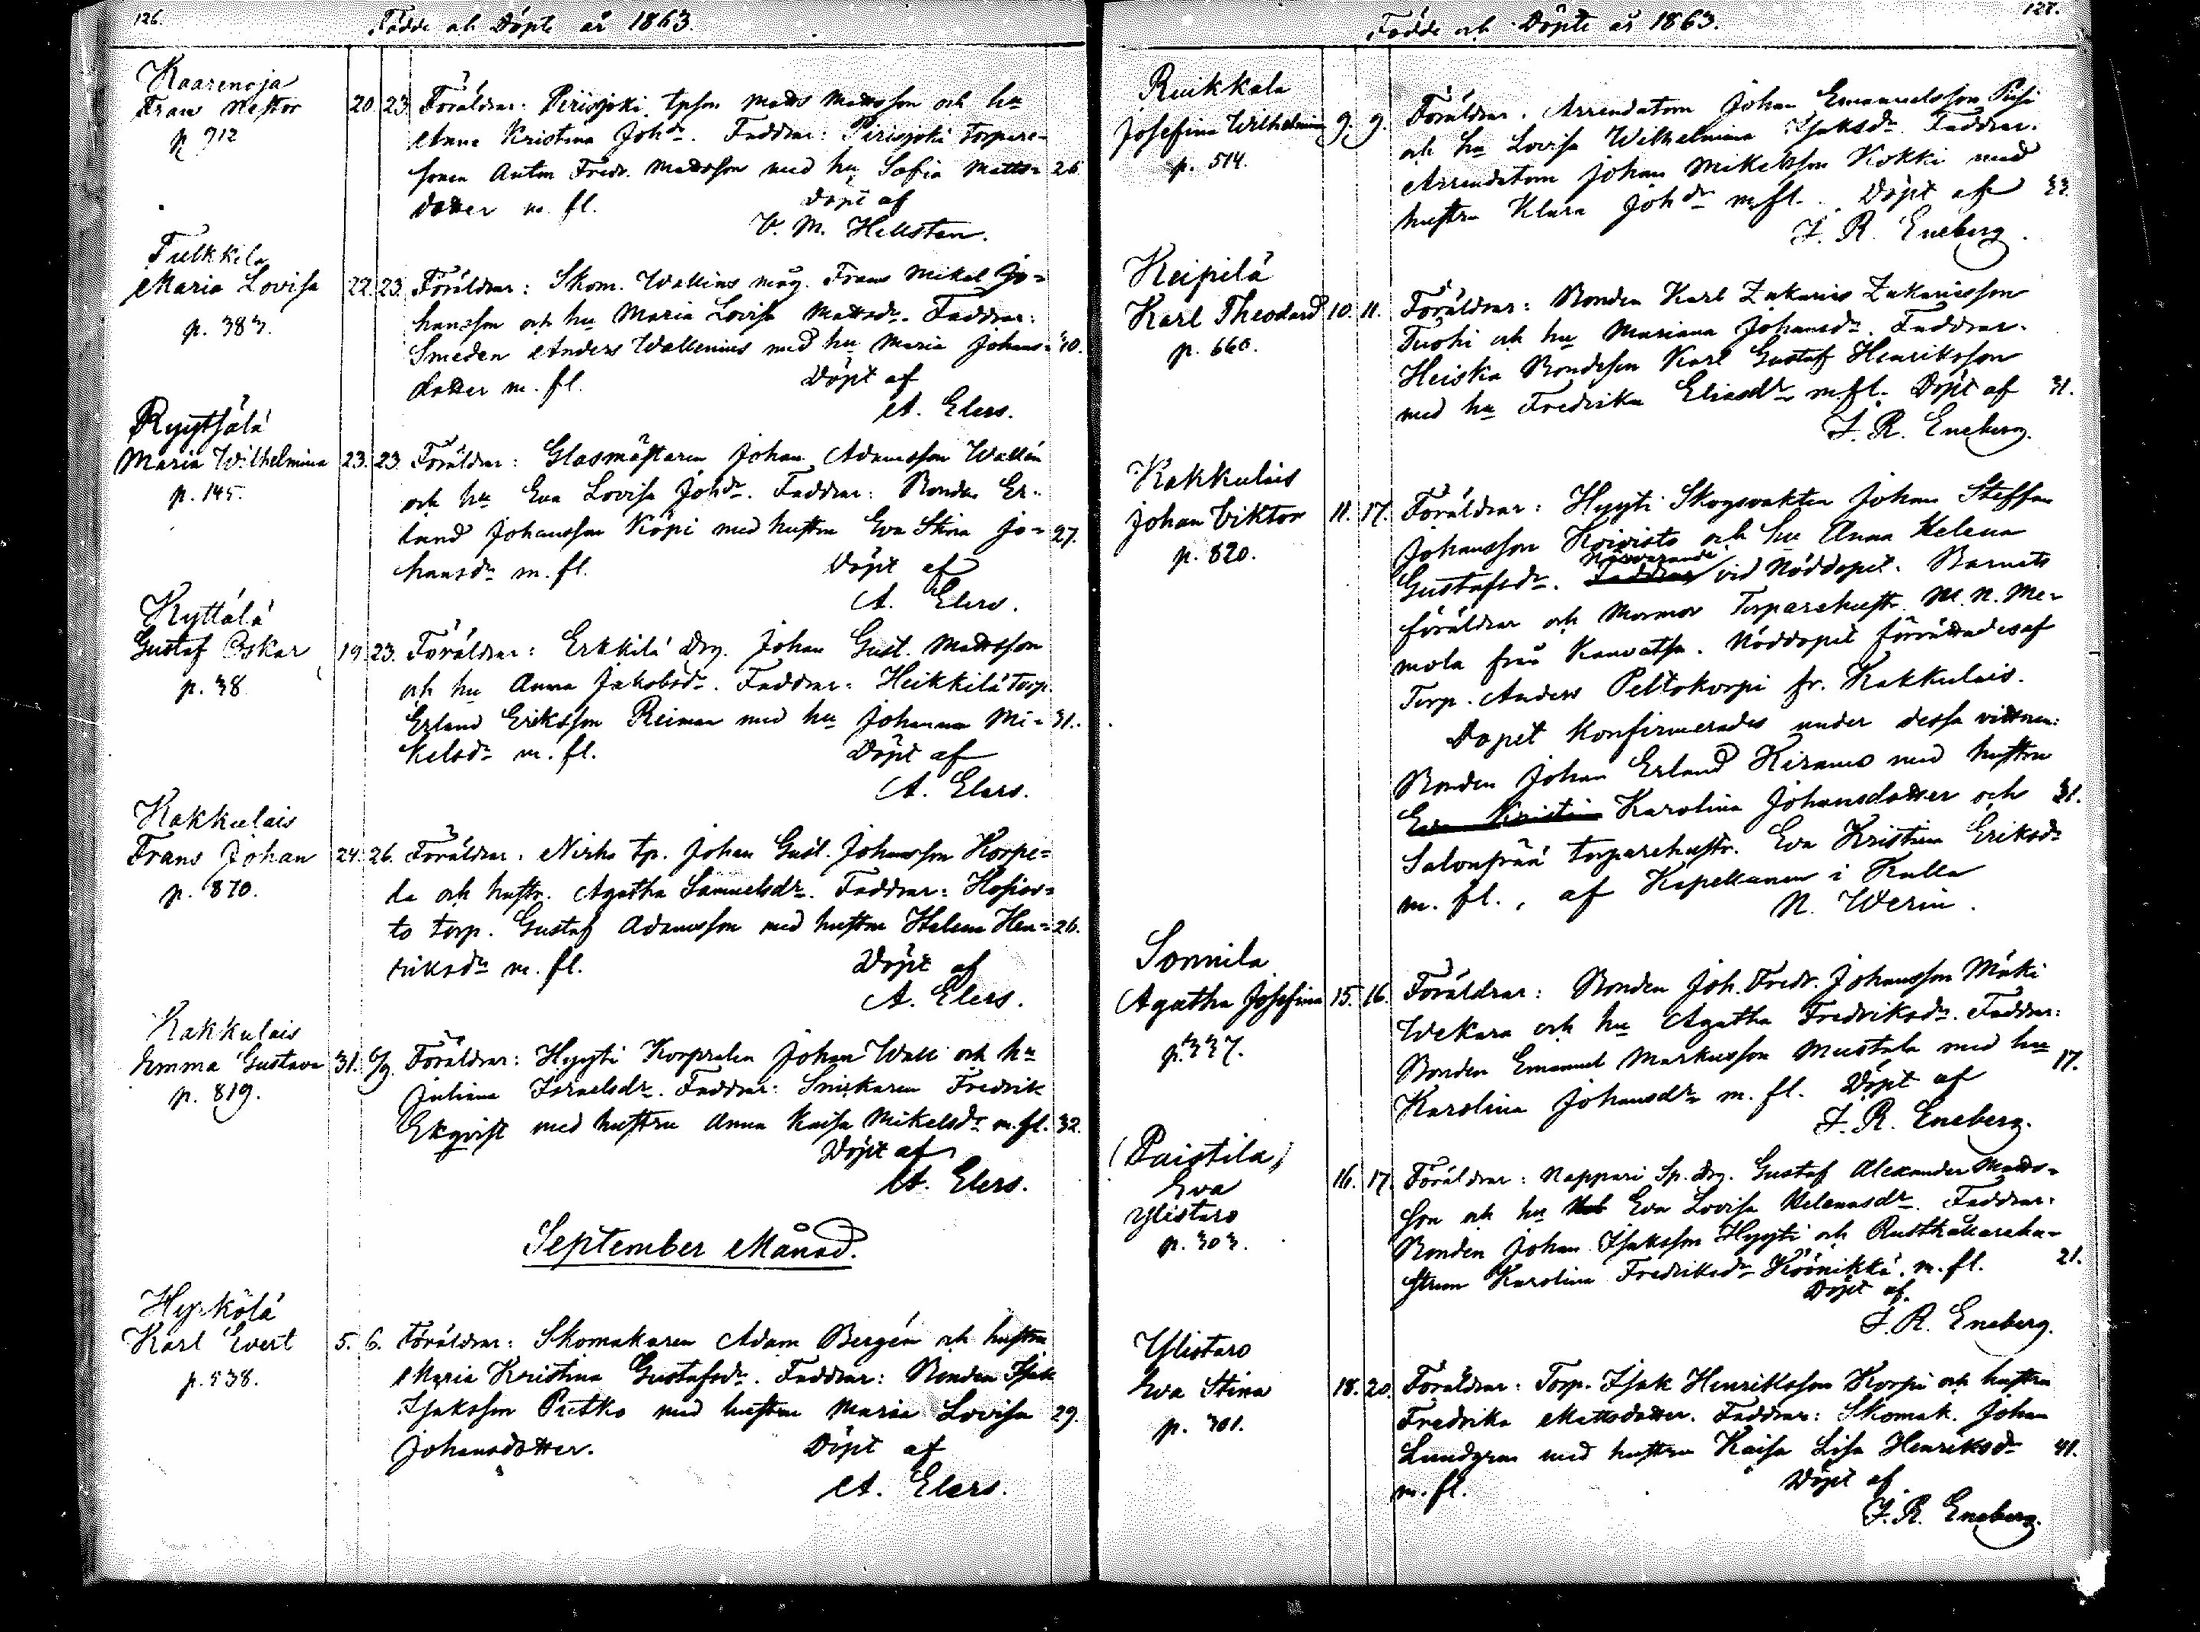 126.
Födde och Döpte år 1863.
Kaarenoja
Frans Nestor 20. 23. Föräldrar: Pirisjoki tpson Matts Mattsson och hu
p. 912
Anna Kristina Johdr. Faddrar: Pirisjoki torpare-
sonen Anton Fredr. Mattsson med hu Sofia Matts- 26.
dotter m. fl. Döpt af
V. M. Hellsten.
Tulkkila
Maria Lovisa 22. 23. Föräldrar: Skom. Wallins måg Frans Mikel Jo-
hansson och hu Maria Lovisa Mattsdr. Faddrar:
p. 383.
Smeden Anders Wallenius med hu Maria Johans- 40.
dotter m. fl. Döpt af
A. Elers.
Ryytsälä
Maria Wilhelmina 23. 23. Föräldrar: Glasmästaren Johan Adamsson Wallén
p. 145.
och hu Eva Lovisa Johdr. Faddrar: Bonden Er-
land Johansson Köpi med hustru Eva Stina Jo- 27.
hansdr m. fl. Döpt af
A. Elers.
Kyttälä
Gustaf Oskar 19. 23. Föräldrar: Erkkilä drg. Johan Gust. Mattsson
p. 38.
och hu Anna Jakobsdr. Faddrar: Heikkilä torp.
Erland Eriksson Reiman med hu Johanna Mi- 31.
kelsdr m. fl. Döpt af
A. Elers.
Kakkulais
Frans Johan 24. 26. Föräldrar: Nirha tp. Johan Gust. Johansson Korpe-
p. 870.
la och hustr. Agatha Samuelsdr. Faddrar: Hosios-
to torp. Gustaf Adamsson med hustru Helena Hen- 26.
riksdr m. fl. Döpt af
A. Elers.
Kakkulais
Emma Gustava 31. 6/9. Föräldrar: Hyyti Korpralen Johan Wall och hu
p. 819.
Juliana Israelsdr. Faddrar: Snickaren Fredrik
Ekqvist med hustru Anna Kaisa Mikelsdr m. fl. 32.
Döpt af
A. Elers.
September Månad.
Hyrkölä
Karl Evert 5. 6. Föräldrar: Skomakaren Adam Bergén och hustru
p. 538.
Maria Kristina Gustafsdr. Faddrar: Bonden Isak
Isaksson Prittko med hustru Maria Lovisa 29.
Johansdotter. Döpt af
A. Elers.
127.
Födde och Döpte år 1863.
Ruikkala
Josefina Wilhelmina 9. 9. Föräldrar: Arrendatorn Johan Emanuelsson Pusa
p. 514.
och hu Lovisa Wilhelmina Isaksdr. Faddrar:
Arrendatorn Johan Mikelsson Kokki med
hustru Klara Johdr m. fl. Döpt af 33.
F. R. Eneberg.
Keipilä
Karl Theodard 10. 11. Föräldrar: Bonden Karl Zakarias Zakariasson
p. 660.
Tuohi och hu Mariana Johansdr. Faddrar:
Heiska Bondeson Karl Gustaf Henriksson
med hu Fredrika Eliasdr m. fl. Döpt af 31.
F. R. Eneberg.
Kakkulais
Johan Viktor 11. 17. Föräldrar: Hyyti Skogsvakten Johan Steffan
p. 820.
Johansson Koivisto och hu Anna Helena
Gustafsdr. Närvarande Faddrar vid Nöddopet. Barnets
föräldrar och Mormor Torparehustr. M. N. Me-
mola från Kauvatsa. Nöddopet förrättades af
Torp. Anders Peltokorpi fr. Kakkulais.
Dopet konfirmerades under dessa vittnen:
Bonden Johan Erland Kiramo med hustru
Eva Kristin Karolina Johansdotter och 31.
Salonpää torparehustr. Eva Kristina Eriksdr
m. fl., af Kapellanen i Kulla
N. Werin.
Sonnila
Agatha Josefina 15. 16. Föräldrar: Bonden Joh. Fredr. Johansson Mäki
p. 337.
Wekara och hu Agatha Fredriksdr. Faddrar:
Bonden Emanuel Markusson Mustala med hu 17.
Karolina Johansdr m. fl. Döpt af
F. R. Eneberg.
(Paistila)
Eva 16. 17. Föräldrar: Nappari Sp. drg. Gustaf Alexander Matts-
Ylistaro
p. 303.
son och hu Eva Lovisa Helenasdr. Faddrar:
Bonden Johan Isaksson Hyyti och Rusthållarehu-
strun Karolina Fredriksdr Köönikkä m. fl. 21.
Döpt af
F. R. Eneberg.
Ylistaro
Eva Stina 18. 20. Föräldrar: Torp. Isak Henriksson Korpi och hustru
p. 301.
Fredrika Mattsdotter. Faddrar: Skomak. Johan
Lundgren med hustru Kaisa Lisa Henriksdr 41.
m. fl. Döpt af
F. R. Eneberg.